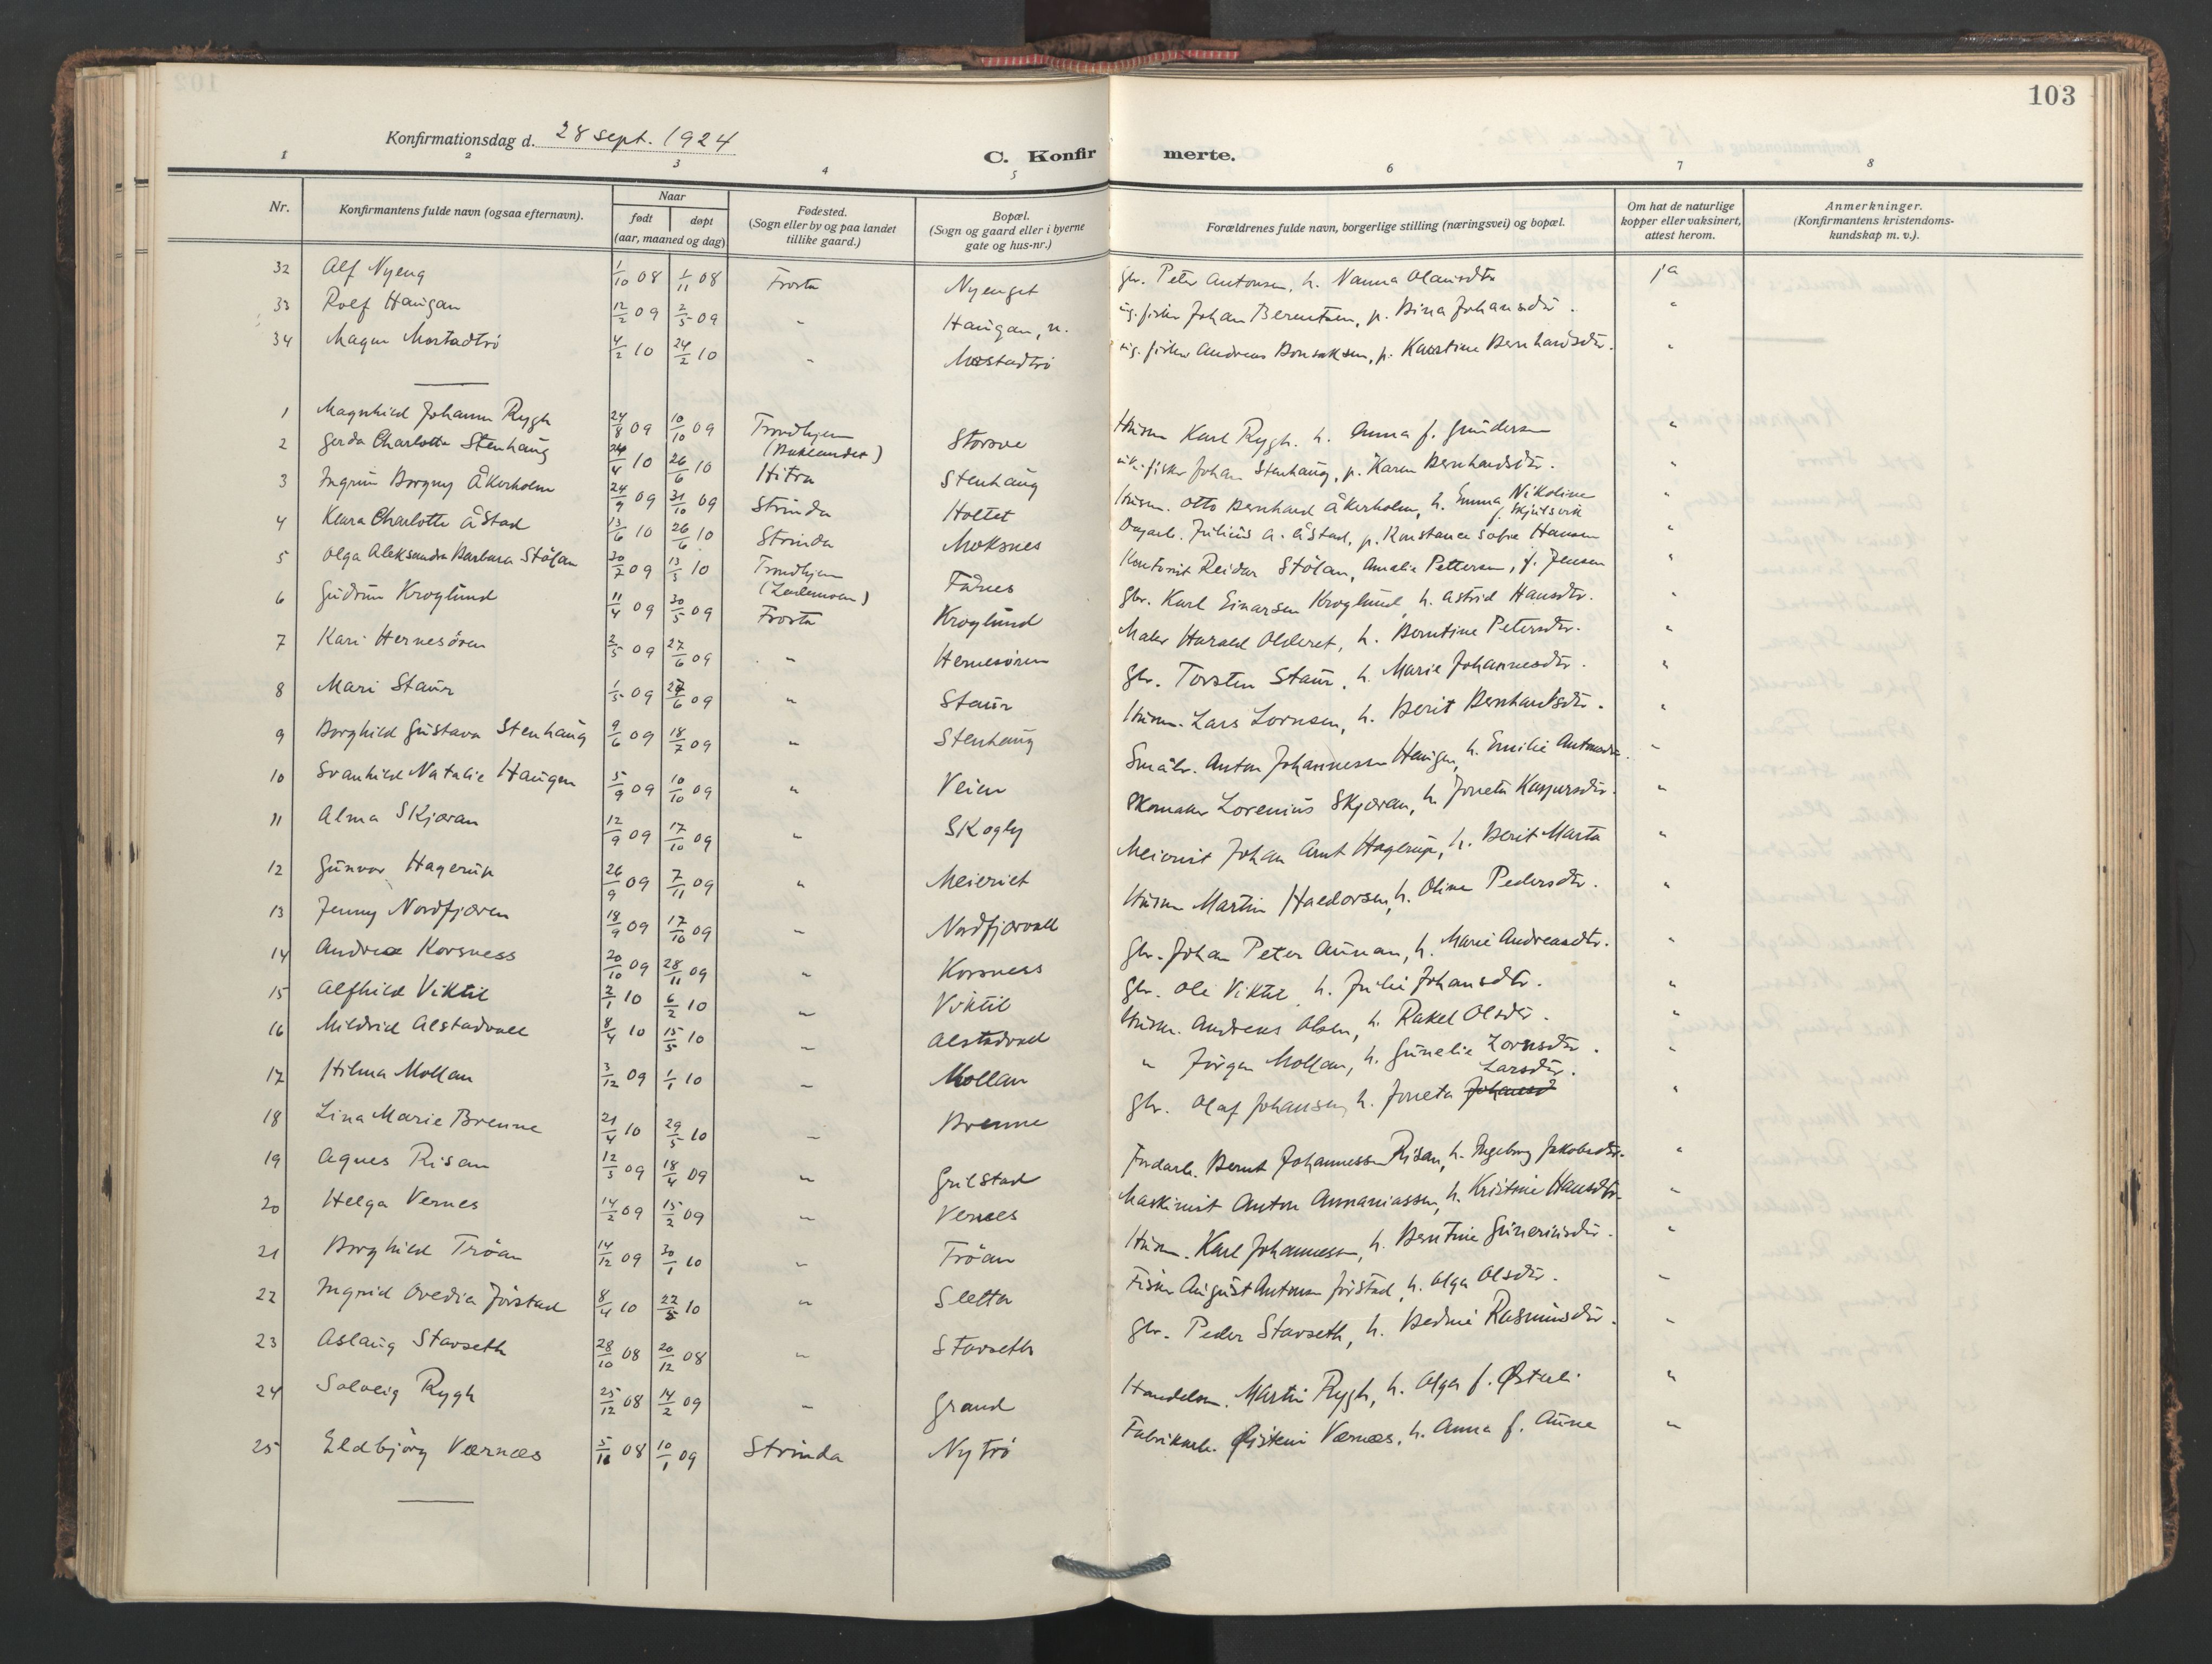 103
Konfirmationsdag d. 28 sept. 1924
C. Konfirmerte.
1 2 3 4 5 6 7 8
Nr. Konfirmantens fulde navn (ogsaa efternavn). Naar født døpt (aar, maaned og dag) Fødested. (Sogn eller by og paa landet tillike gaard.) Bopæl. (Sogn og gaard eller i byerne gate og hus-nr.) Forældrenes fulde navn, borgerlige stilling (næringsvei) og bopæl. Om hat de naturlige kopper eller vaksinert, attest herom. Anmerkninger. (Konfirmantens kristendomskundskap m. v.).
32 Alf Nyeng 1/10 08 1/11 08 Frosta Nyenget gbr. Peter Antonsen, h. Nanna Olausdtr ja
33 Rolf Haugan 12/2 09 2/5 09 " Haugan, n. ug. fisker Johan Berentsen, p. Bina Johansdtr. "
34 Magne Mostadtrö 4/2 10 24/2 10 " Mostadtrö ug. fisker Andreas Bonsaksen, p. Karstine Bernhardsdtr. "
1 Magnhild Johanne Rygh 24/8 09 10/10 09 Trondhjem (Baklandet) Storove Husm Karl Rygh. h. Anna f. Gundersen "
2 Gerda Charlotte Stenhaug 24/4 10 26/6 10 Hitra Stenhaug fisker Johan Stenhaug, p. Karen Bernhardsdtr. "
3 Ingrun Borgny Åkerholm 24/9 09 31/10 09 Strinda Holtet Husm. Otto Bernhard Åkerholm, h. Emma Nikoline f. Skjulsvik "
4 Klara Charlotte Åstad 13/6 10 26/6 10 Strinda Moksnes Dagarb. Julius A. Åstad, p. Konstance Sofie Hansen "
5 Olga Aleksandra Barbara Stölan 20/7 09 13/3 10 Trondhjem (Lademoen) Fånes Kontorist Reidar Stölan, Amalie Pettersen, f. Jensen "
6 Gudrun Kroglund 11/4 09 30/5 09 Frosta Kroglund gbr. Karl Einarsen Kroglund, h. Astrid Hansdtr. "
7 Kari Hernesören 2/5 09 27/6 09 " Hernesören Maler Harald Olderet, h. Berntine Petersdtr. "
8 Mari Staur 1/5 09 27/6 09 " Staur Gbr. Torsten Staur, h. Marie Johannesdtr. "
9 Borghild Gustava Stenhaug 9/6 09 18/7 09 " Stenhaug Husm. Lars Lornsen, h. Berit Bernhardsdtr. "
10 Svanhild Natalie Haugen 5/9 09 10/10 09 " Veien Småbr. Anton Johannessen Haugen, h. Emilie Antonsdtr. "
11 Alma Skjæran 12/9 09 17/10 09 " Skogly Skomaker Lorenius Skjæran, h. Joneta Kaspersdtr. "
12 Gunvor Hagerup 26/9 09 7/11 09 " Meieriet Meierist Johan Arnt Hagerup, h. Berit Marta "
13 Jenny Nordfjæren 18/9 09 17/10 09 " Nordfjærvald Husm Martin Haldorsen, h. Oline Pedersdtr. "
14 Andrea Korsness 20/10 09 28/11 09 " Korsness gbr. Johan Peter Aunan, h. Marie Andreasdtr. "
15 Alfhild Viktil 2/1 10 6/2 10 " Viktil gbr. Ole Viktil h. Julie Johansdtr. "
16 Mildrid Alstadvald 8/4 10 15/5 10 " Alstadvald Husm. Andreas Olsen, h. Rakel Olsdtr. "
17 Hilma Mollan 3/12 09 1/1 10 " Mollan " Jörgen Mollan, h. Gunelie Lornsdtr. "
18 Lina Marie Brenne 21/4 10 29/5 10 " Brenne gbr. Olaf Johansen, h. Joneta Johansd Larsdtr. "
19 Agnes Risan 12/3 09 18/4 09 " Grilstad Jordarb. Bernt Johannessen Risan, h. Ingeborg Jakobsdtr. "
20 Helga Vernes 14/2 09 15/2 09 " Vernes Maskinist Anton Annaniassen, h. Kristine Hansdtr. "
21 Borghild Tröan 14/12 09 30/1 10 " Tröan Husm. Karl Johannessen, h. Berntine Guneriusdtr. "
22 Ingrid Ovedia Jörstad 8/4 10 22/5 10 " Sletta Fisker August Antonsen Jörstad, h. Olga Olsdtr. "
23 Aslaug Stavseth 28/10 08 20/12 08 " Stavseth gbr. Peder Stavseth, h. Bedine Rasmusdtr. "
24 Solveig Rygh 25/12 08 14/2 09 " Grand Handelsm. Martin Rygh, h. Olga f. Østerli "
25 Eldbjörg Værnæs 5/11 08 10/1 09 Strinda Nytrö Fabrikarb. Øistein Værnæs, h. Anna f. Aune "